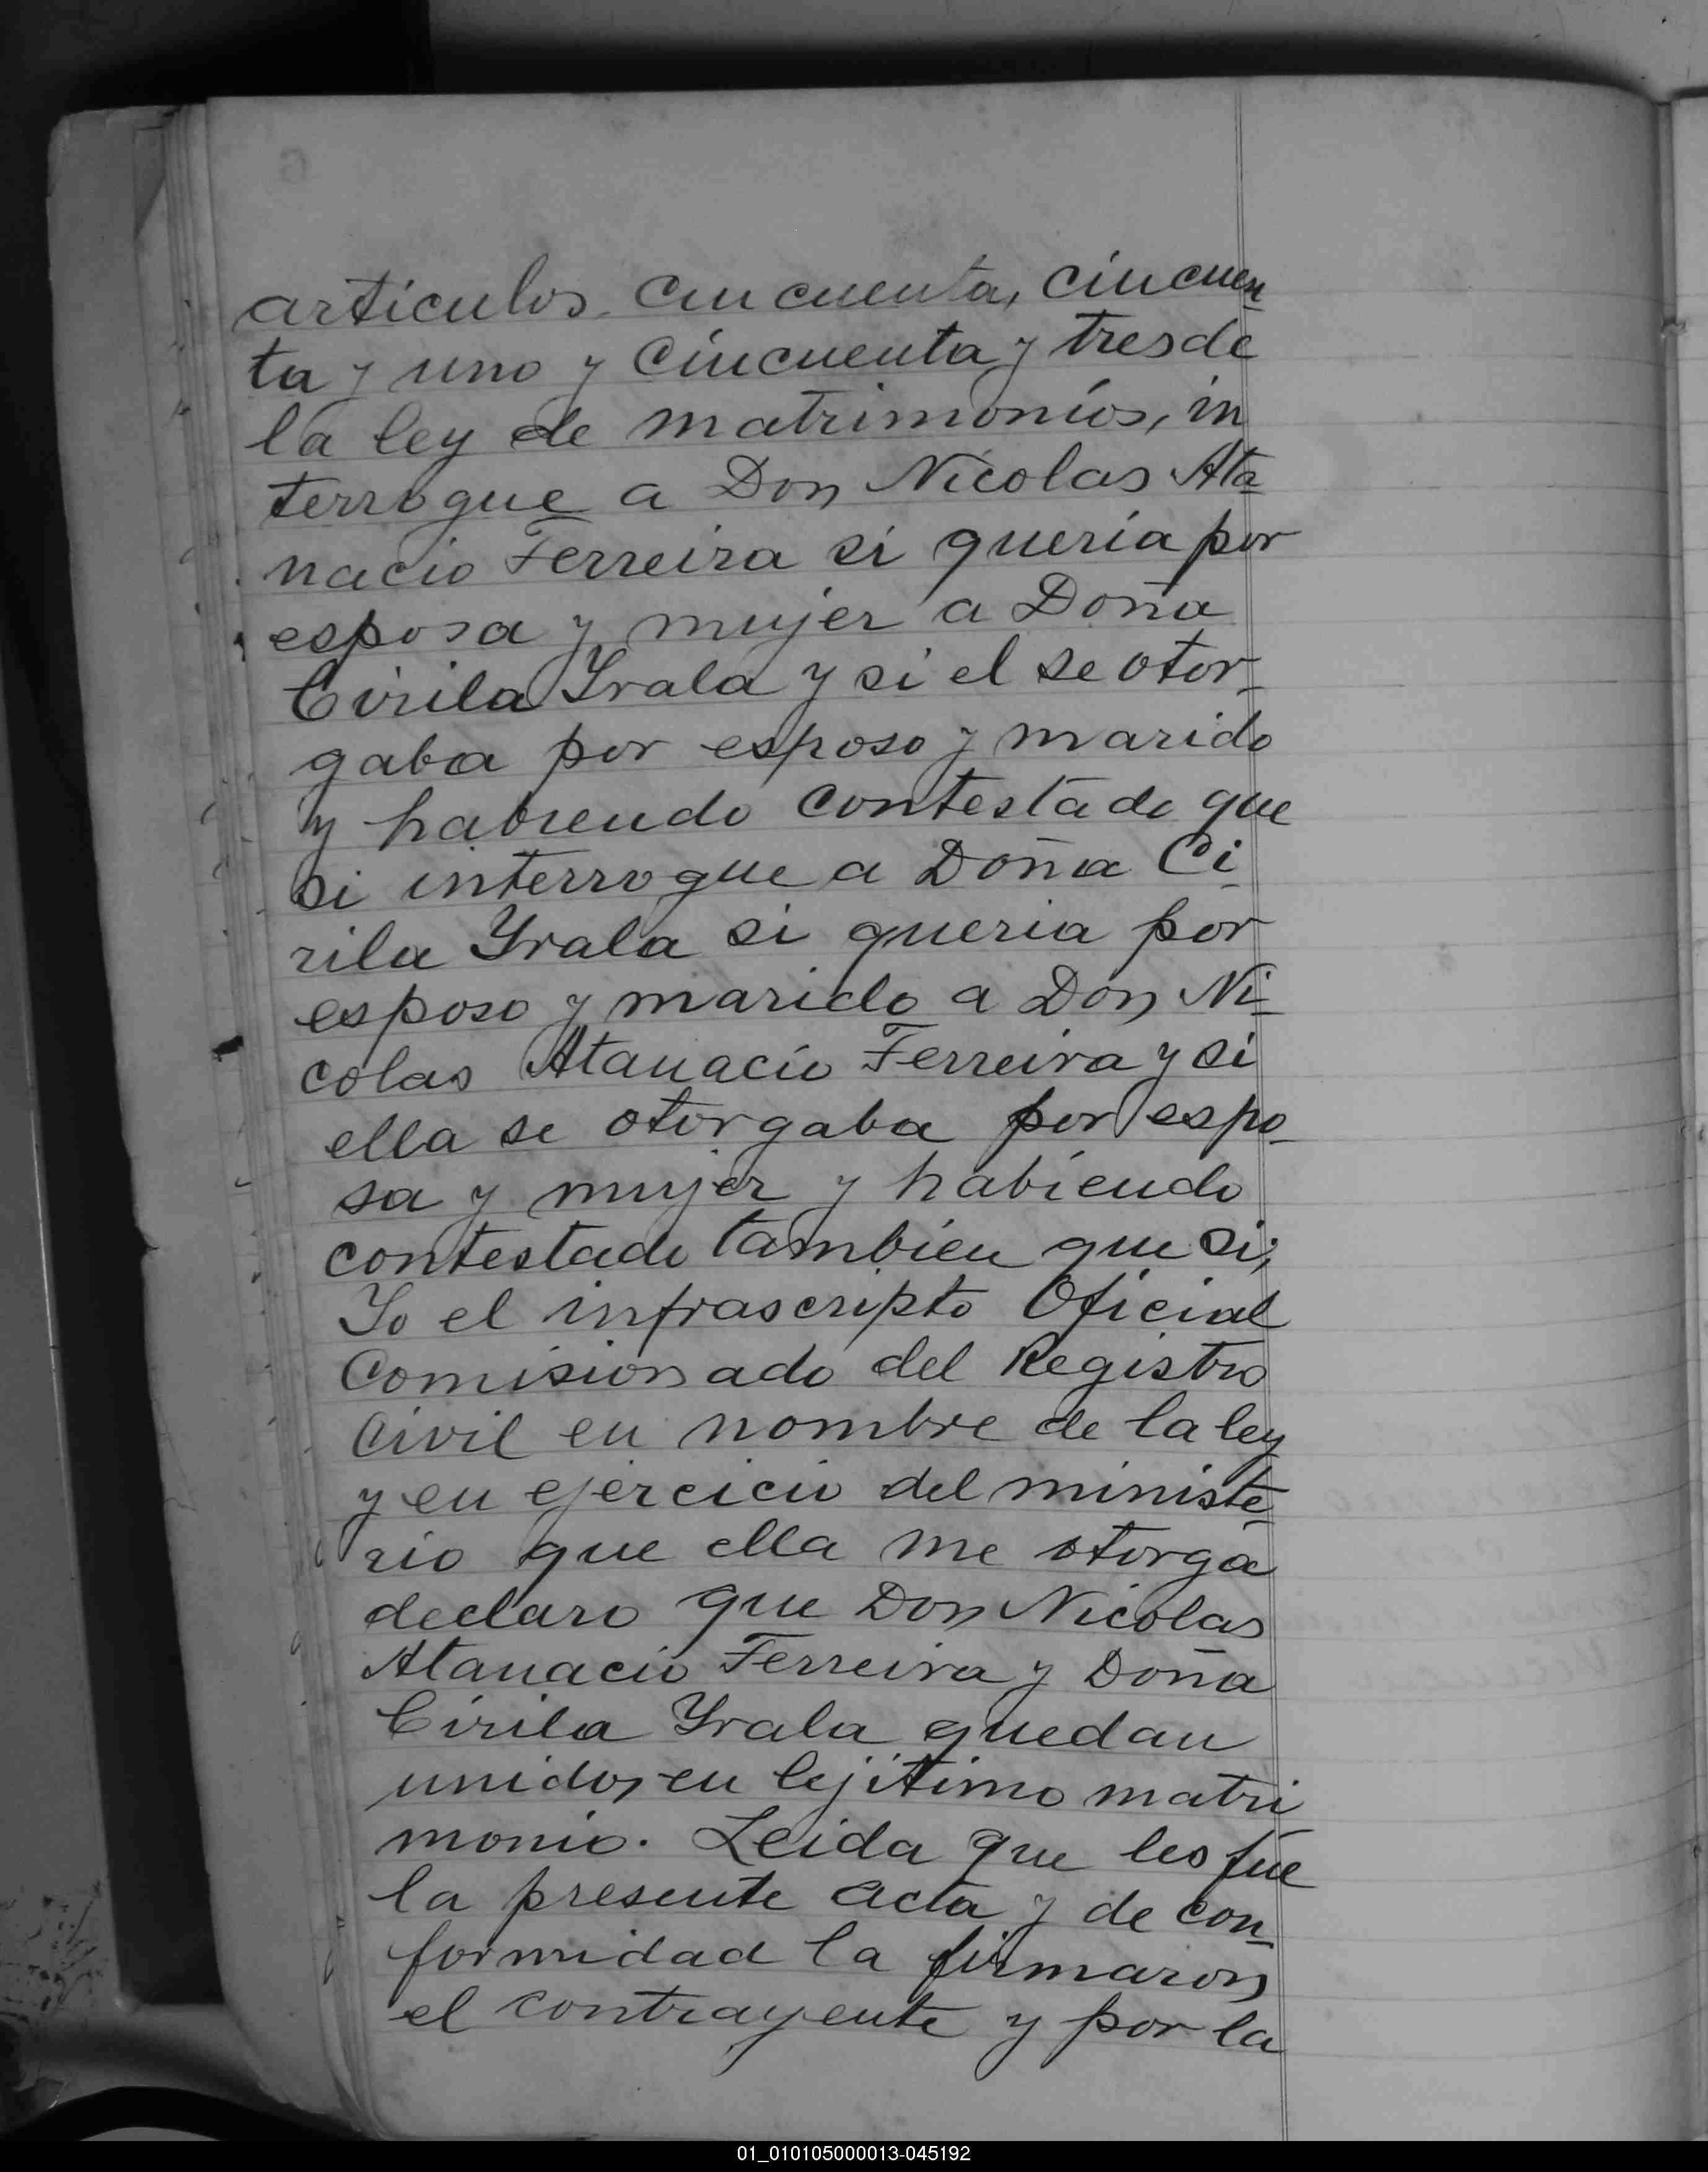 articulos cincuenta, cincuen-
ta y uno y cincuenta y tres de
la ley de matrimonios, in
terrogue a Don Nicolas Ata-
nacio Ferreira si queria por
esposa y mujer a Doña
Cirila Yrala y si el se otor-
gaba por esposo y marido
y habiendo contestado que
si interrogue a Doña Ci-
rila Yrala si queria por
esposo y marido a Don Ni-
colas Atanacio Ferreira y si
ella se otorgaba por espo-
sa y mujer y habiendo
contestado tambien que si;
Yo el infrascripto Oficial
Comisionado del Registro
Civil en nombre de la ley
y en ejercicio del ministe-
rio que ella me otorga
declaro que Don Nicolas
Atanacio Ferreira y Doña
Cirila Yrala quedan
unidos en lejitimo matri
monio. Leida que les fue
la presente acta y de con-
formidad la firmaron
el contrayente y por la
01_010105000013-045192